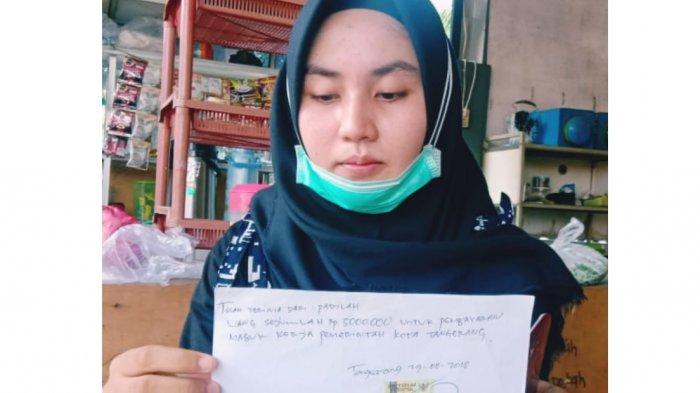 TELAH TERIMA DARI : PADILAH
UANG SEJUMLAH Rp 5000.000 UNTUK PEMBAYARAN
MASUK KERJA PEMERINTAH KOTA TANGERANG.
Tangerang 29-08-2018